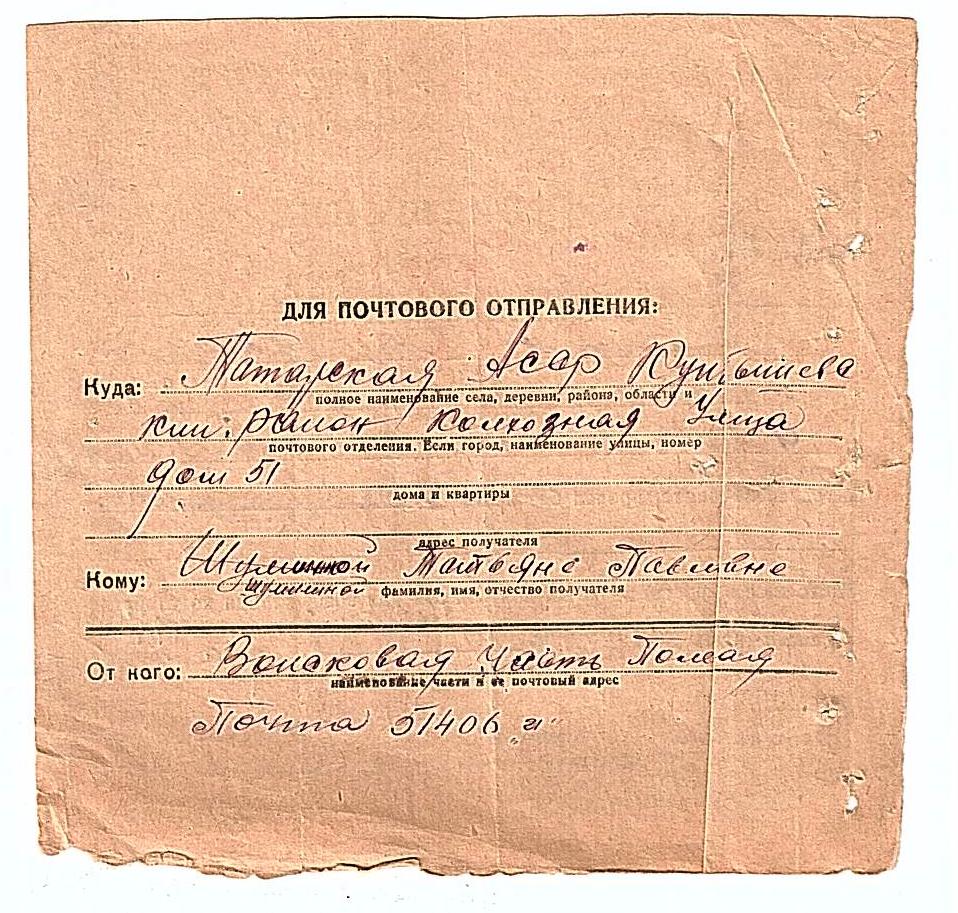 ДЛЯ ПОЧТОВОГО ОТПРАВЛЕНИЯ:
Куда: Татарская Асар Куйбышева
полное наименование села, деревни, района, области и
кии. район Колхозная Улица
почтового отделения. Если город, наименование улицы, номер
дом 51
дома и квартиры
адрес получателя
Кому: Татьяне Павлвне
шумииной фамилия, имя, отчество получателя
От кого: Воисковая Часть Полеая
наименование части и ее почтовый адрес
Почта 51406